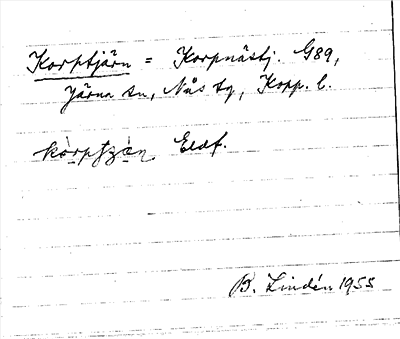 Korptjärn = Korpnästj. G89,
Järna sn, Nås tg, Kopp. l.
korptjɑ̈n Eldf.
B. Lindén 1955